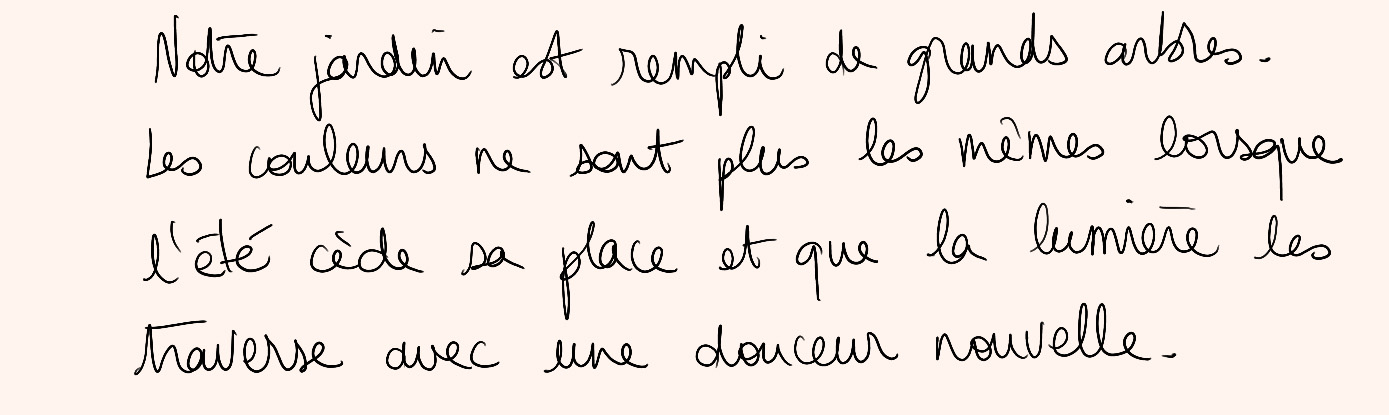 Notre jardin est rempli de grands arbres.
Les couleurs ne sont plus les mêmes lorsque
l'été cède sa place et que la lumière les
traverse avec une douceur nouvelle.